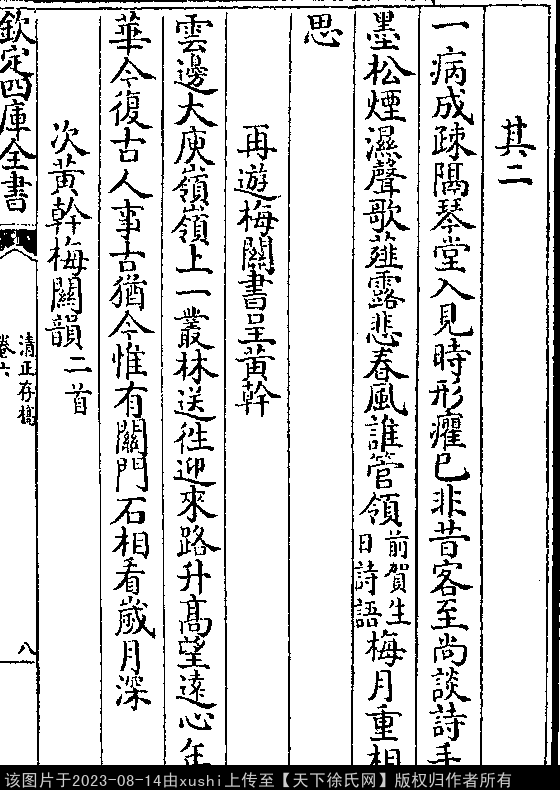 其二
一病成疎隅琴堂入見時形癯已非昔客至尚談詩手
墨松煙濕聲歌薤露悲春風誰管領前賀生日詩語梅月重相
思
再遊梅關書呈黄幹
雲邊大庾嶺嶺上一叢林送徃迎來路升髙望遠心年
華今復古人事古猶今惟有關門石相看歲月深
次黄幹梅關韻二首
欽定四庫全書
清正存稿
卷六
八
该图片于2023-08-14由xushi上传至【天下徐氏网】版权归作者所有